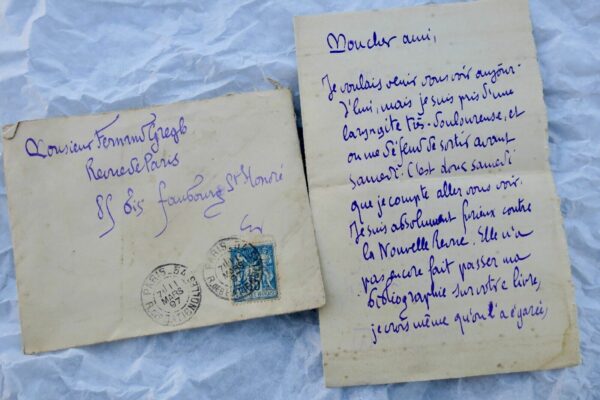 Monsieur Fernand Gregh
Revue de Paris
85 bis faubourg St Honoré
EV
PARIS 84
7E 11
MARS
97
Mon cher ami,
Je voulais venir vous voir aujour-
d'hui, mais je suis pris d'une
laryngite très-douloureuse, et
on me défend de sortir avant
samedi. C'est donc samedi
que je compte aller vous voir.
Je suis absolument furieux contre
la Nouvelle Revue. Elle n'a
pas encore fait passer ma
bibliographie sur votre livre,
je crois même qu'on l'a égarée,